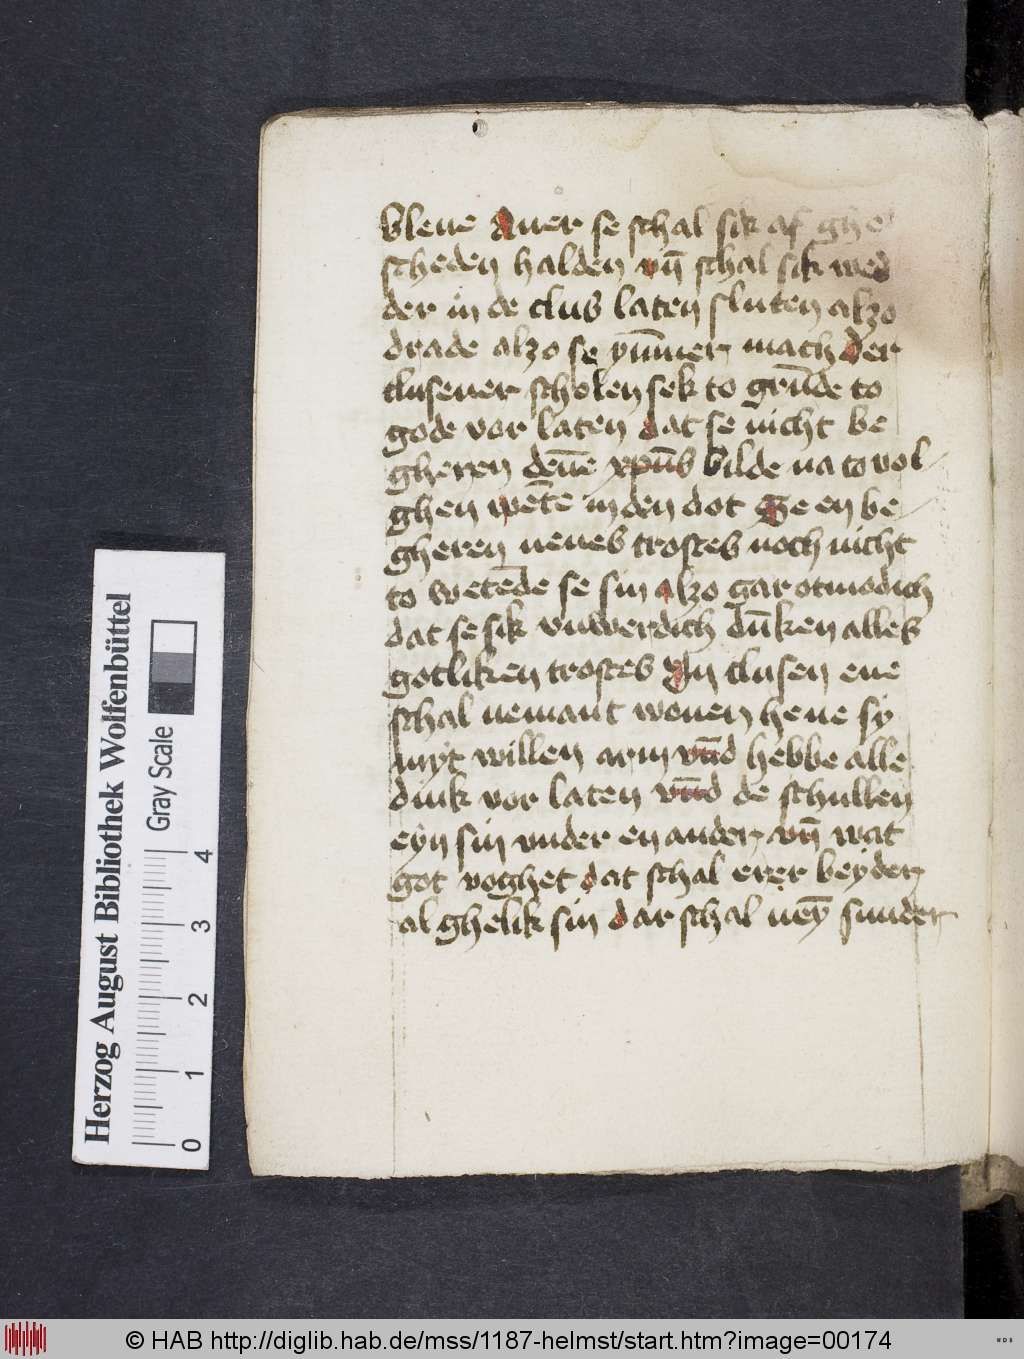 bleue Auer se schal sik af ghe
scheden halden vn̄ schal sik wed
der in de clus laten sluten alzo
drade alzo se yūmer mach der
clusener scholen sek to grūde to
gode vor laten dat se nicht be
gheren den̄e xpūs bilde na to vol
ghen wēte in den dot Se en be
gheren nenes trostes noch nicht
to wetēde se sin alzo gar otmodich
dat se sik vnwerdich dūken alles
gotliken trostes Jn clusen ene
schal nemant wonen he ne sy
myt willen arm vn̄d hebbe alle
dink vor laten vn̄d de schullen
eyn sin vnder en ander vn̄ wat
got voghet dat schal erer beyder
al ghelik sin dar schal ney̅ sunder
Herzog August Bibliothek Wolfenbüttel
Gray Scale
0 1 2 3 4
© HAB http://diglib.hab.de/mss/1187-helmst/start.htm?image=00174
WDB